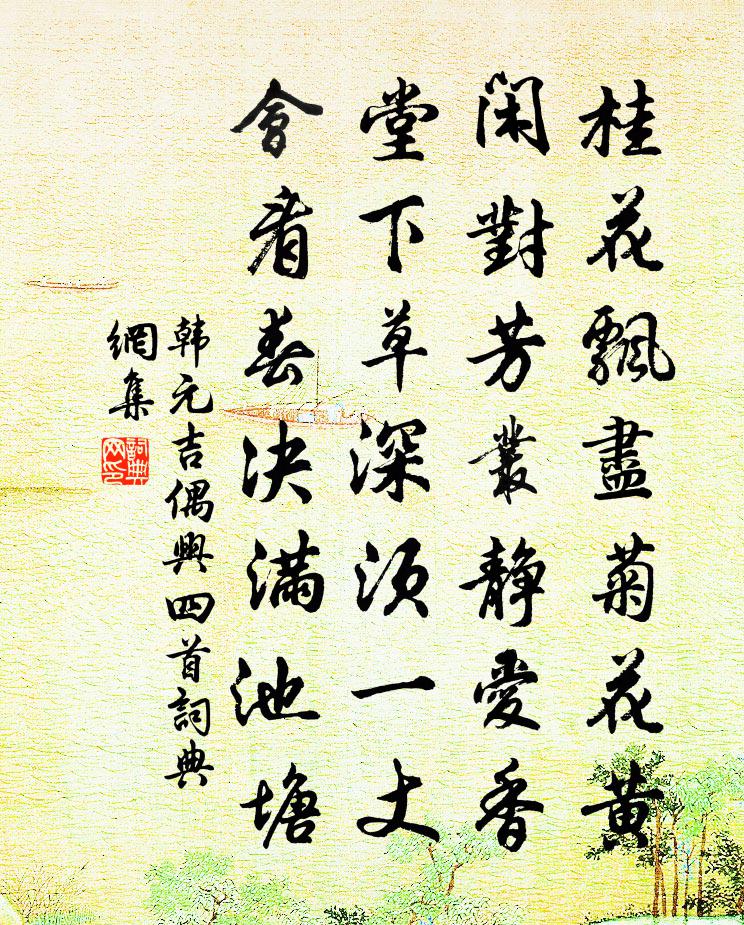 桂花飄盡菊花黃
閑對芳叢静愛香
堂下草深須一丈
會看春決滿池塘
韩元吉偶興四首詞典
網集
詞典网印